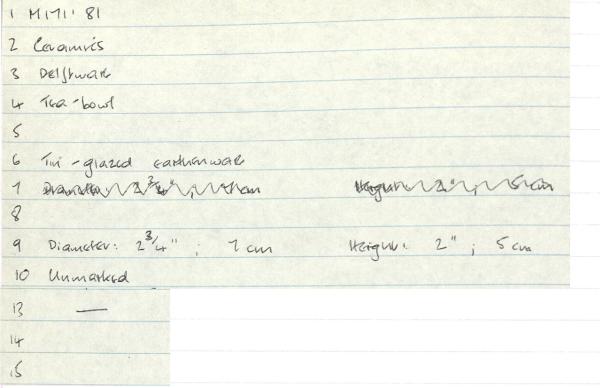 1 M171'81
2 Ceramics
3 Delftware
4 Tea-bowl
5
6 Tin-glazed earthenware
7 Diameter 2 3/4" ; 7 cm Height 2" ; 5 cm
8
9 Diameter: 2 3/4" ; 7 cm Height: 2" ; 5 cm
10 Unmarked
13 —
14
15